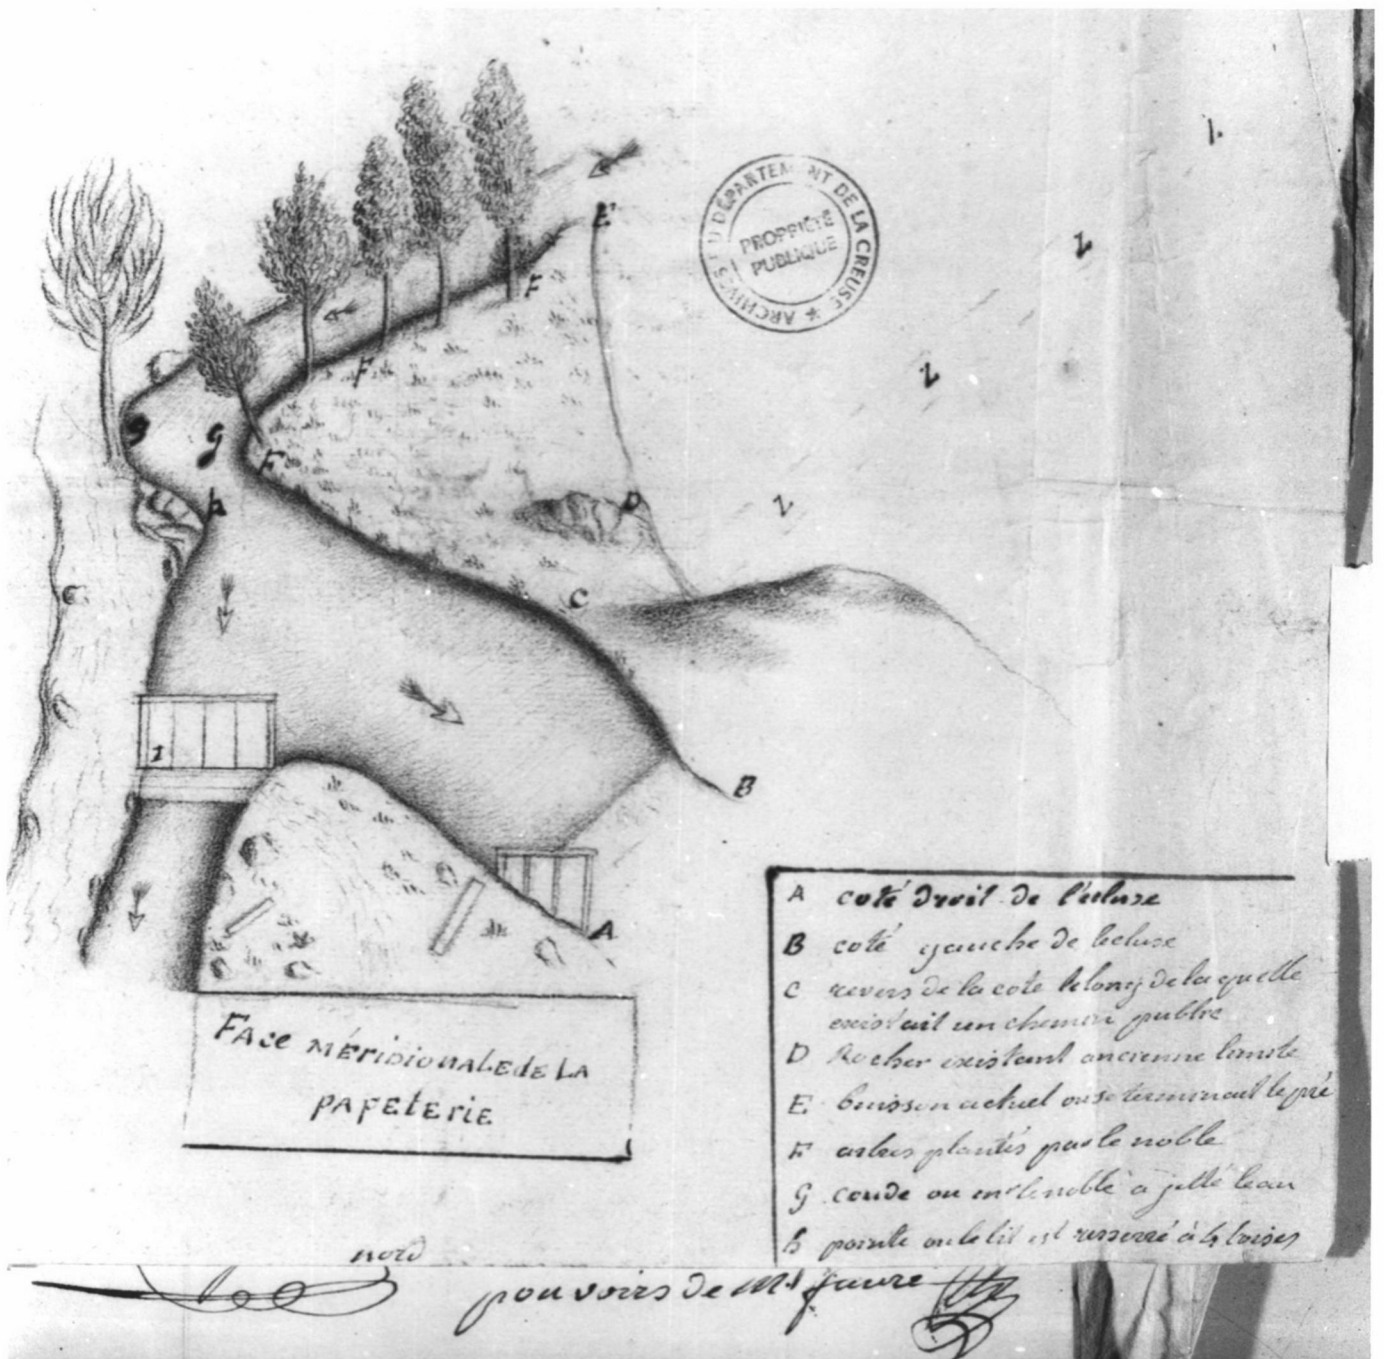 1.
E
ARCHIVES DU DÉPARTEMENT DE LA CREUSE
PROPRIÉTÉ
PUBLIQUE
2
F
F
2
g
G
F
D
2
h
C
I
B
A
A coté droit de l'écluse
B coté gauche de lecluse
C revers de la cote le long de la quelle
existait un chemin public
D Rocher existant ancienne limite
E buisson actuel ou se terminait le pré
F arbres plantés par le noble
G coude ou mr lenoble a jetté leau
h pointe ou le lit est resserré à 4 toises
FAce MÉridionALe de LA
PAPeterie
nord
pouvoirs de Mr faure